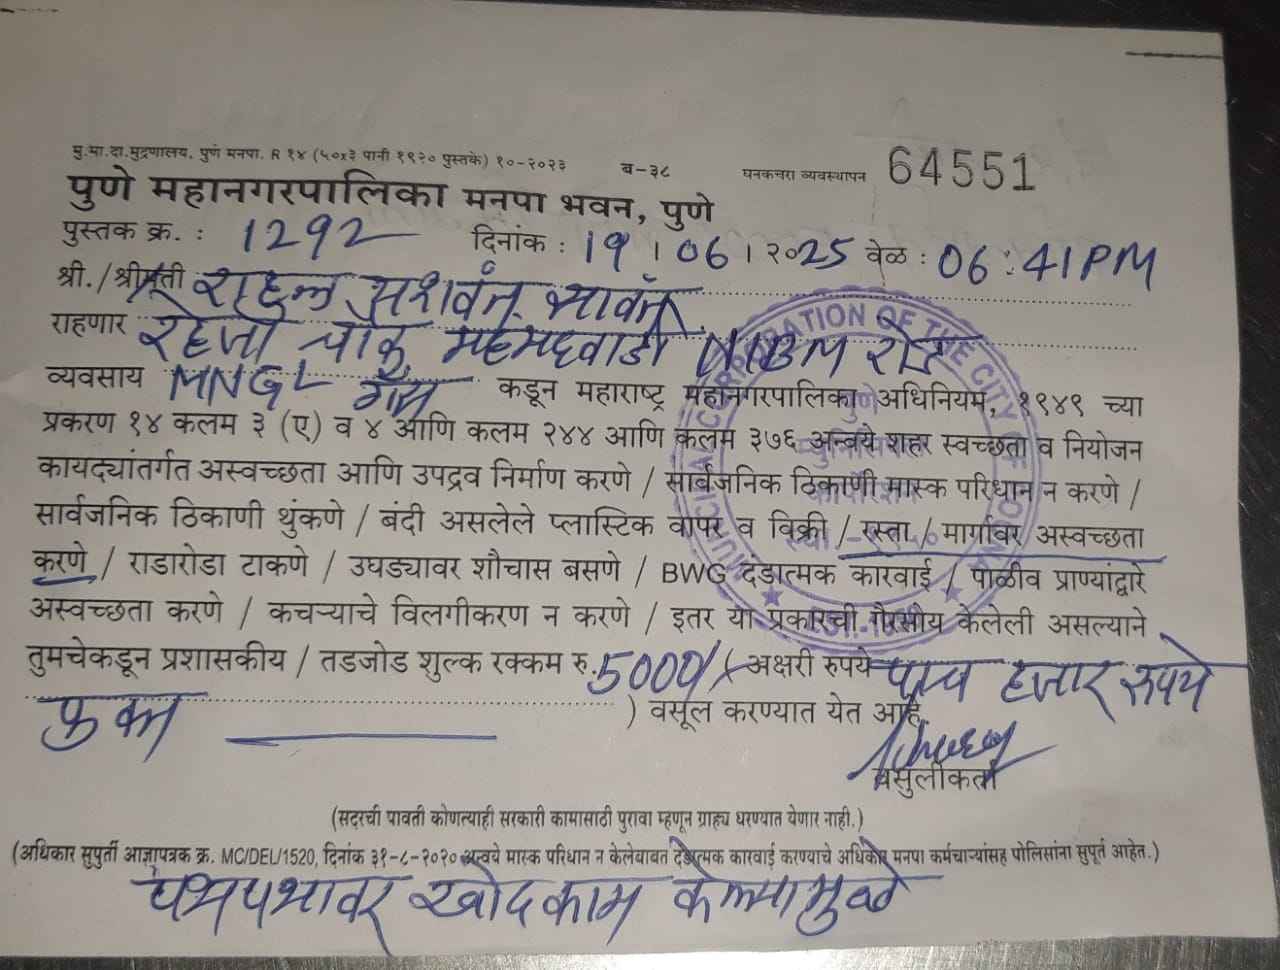 मु.मा.दा.मुद्रणालय, पुणे मनपा. R १४ (५०x३ पानी १९२० पुस्तके) १०-२०२३ ब-३८ घनकचरा व्यवस्थापन 64551
पुणे महानगरपालिका मनपा भवन, पुणे
पुस्तक क्र. : 1292 दिनांक : 19 / 06 / २०25 वेळ : 06 : 41 PM
श्री./श्रीमती राहुल
राहणार रहेजा चौक महमदवाडी NIBM रोड
व्यवसाय MNGL गॅस कडून महाराष्ट्र महानगरपालिका अधिनियम, १९४९ च्या
प्रकरण १४ कलम ३ (ए) व ४ आणि कलम २४४ आणि कलम ३७६ अन्वये शहर स्वच्छता व नियोजन
कायद्यांतर्गत अस्वच्छता आणि उपद्रव निर्माण करणे / सार्वजनिक ठिकाणी मास्क परिधान न करणे /
सार्वजनिक ठिकाणी थुंकणे / बंदी असलेले प्लास्टिक वापर व विक्री / रस्ता / मार्गावर अस्वच्छता
करणे / राडारोडा टाकणे / उघड्यावर शौचास बसणे / BWG दंडात्मक कारवाई / पाळीव प्राण्यांद्वारे
अस्वच्छता करणे / कचऱ्याचे विलगीकरण न करणे / इतर या प्रकारची गैरसोय केलेली असल्याने
तुमचेकडून प्रशासकीय / तडजोड शुल्क रक्कम रु. 5000/- ( अक्षरी रुपये पाच हजार रुपये
फक्त ) वसूल करण्यात येत आहे.
वसुलीकर्ता
(सदरची पावती कोणत्याही सरकारी कामासाठी पुरावा म्हणून ग्राह्य धरण्यात येणार नाही.)
(अधिकार सुपुर्ती आज्ञापत्रक क्र. MC/DEL/1520, दिनांक ३१-८-२०२० अन्वये मास्क परिधान न केलेबाबत दंडात्मक कारवाई करण्याचे अधिकार मनपा कर्मचाऱ्यांसह पोलिसांना सुपूर्त आहेत.)
पथपथावर खोदकाम केल्यामुळे